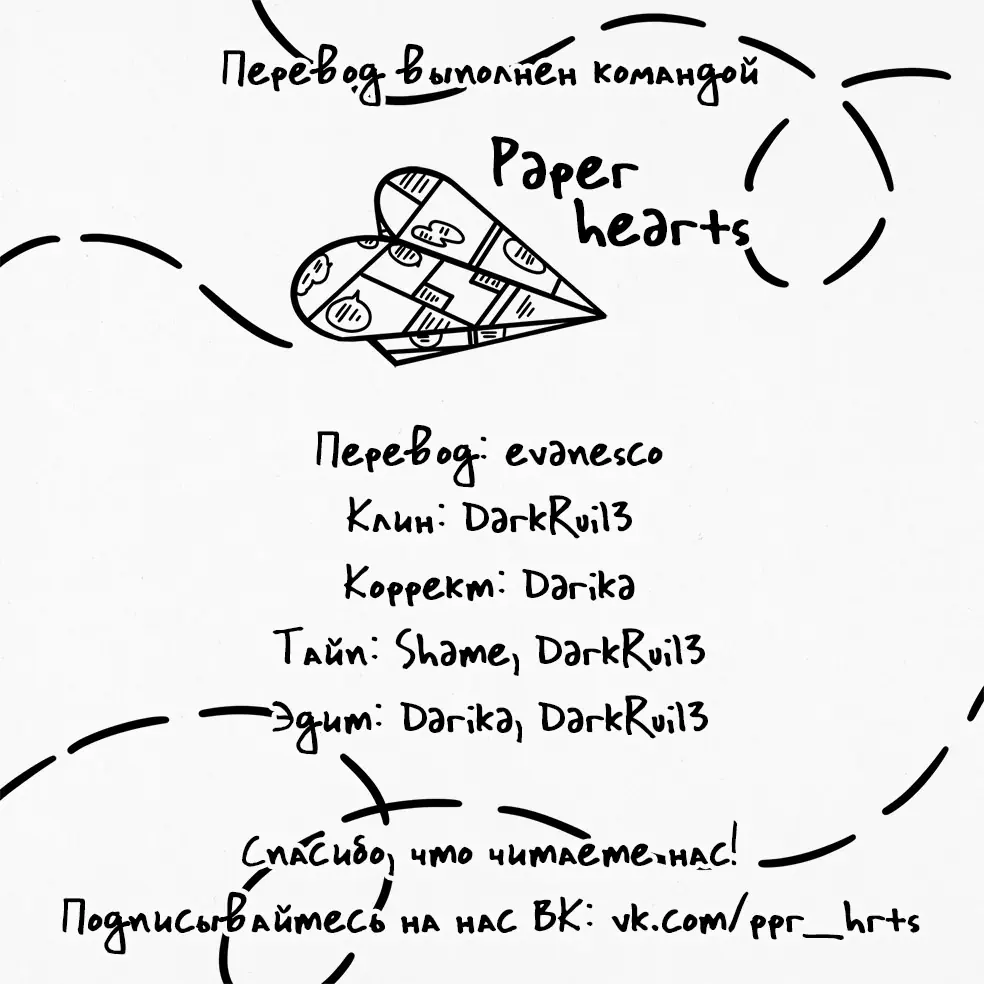 Перевод выполнен командой
Paper
hearts
Перевод: evanesco
Клин: DarkRui13
Коррект: Darika
Тайп: Shame, DarkRui13
Эдит: Darika, DarkRui13
Спасибо, что читаете нас!
Подписывайтесь на нас ВК: vk.com/ppr_hrts